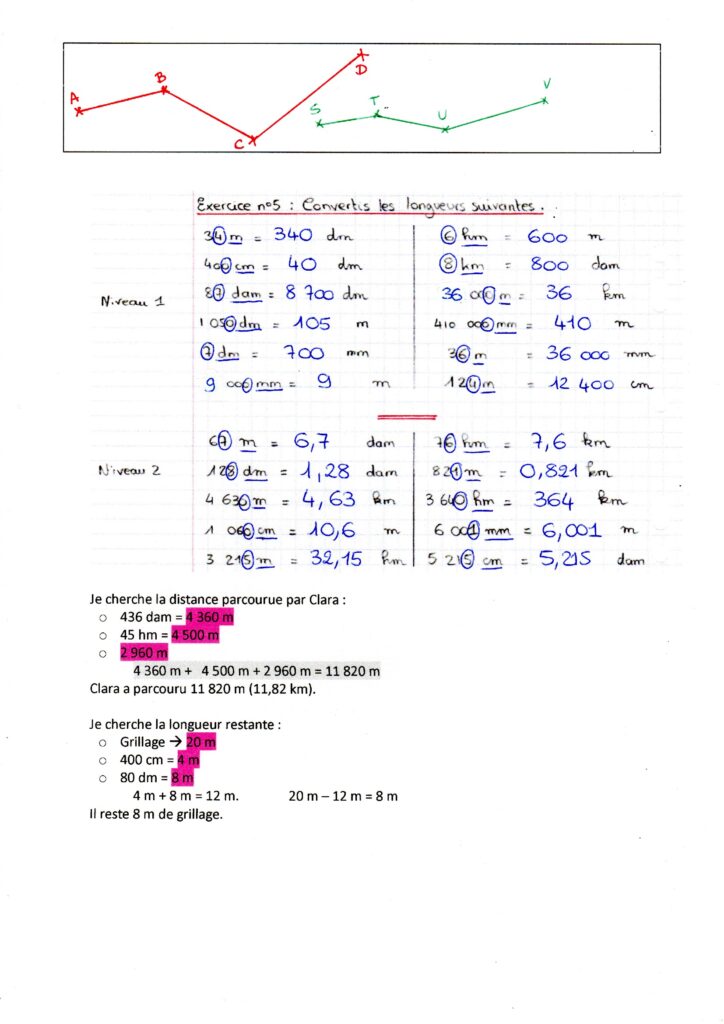 A B C D
S T U V
Exercice n°5 : Convertis les longueurs suivantes.
Niveau 1
34 m = 340 dm
400 cm = 40 dm
87 dam = 8 700 dm
1 050 dm = 105 m
7 dm = 700 mm
9 000 mm = 9 m
6 hm = 600 m
8 km = 800 dam
36 000 m = 36 km
410 000 mm = 410 m
36 m = 36 000 mm
124 m = 12 400 cm
Niveau 2
67 m = 6,7 dam
128 dm = 1,28 dam
4 630 m = 4,63 km
1 060 cm = 10,6 m
3 215 m = 32,15 hm
76 hm = 7,6 km
821 m = 0,821 km
3 640 hm = 364 km
6 001 mm = 6,001 m
5 215 cm = 5,215 dam
Je cherche la distance parcourue par Clara :
o 436 dam = 4 360 m
o 45 hm = 4 500 m
o 2 960 m
4 360 m + 4 500 m + 2 960 m = 11 820 m
Clara a parcouru 11 820 m (11,82 km).
Je cherche la longueur restante :
o Grillage → 20 m
o 400 cm = 4 m
o 80 dm = 8 m
4 m + 8 m = 12 m. 20 m – 12 m = 8 m
Il reste 8 m de grillage.